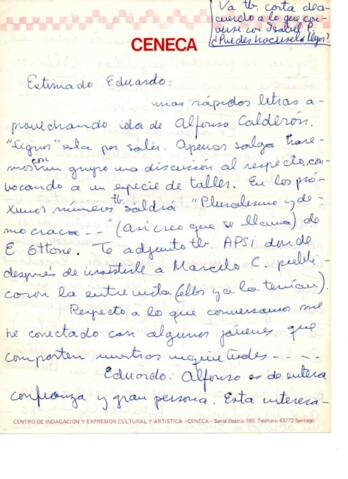 Va tb. carta de a-
cuerdo a lo que con-
versé con Isabel
¿Puedes hacérsela llegar?
CENECA
Estimado Eduardo:
unas rápidas letras a-
provechando ida de Alfonso Calderón.
"Signos" está por salir. Apenas salga hare-
mos con un grupo una discusión al respecto, con-
vocando a un especie de taller. En los pró-
ximos números tb. saldrá "Pluralismo y de-
mocracia--" (así creo que se llama) de
E. Ottone. Te adjunto tb. APSI donde
después de insistirle a Marcelo C. publi-
caron la entrevista (ellos ya la tenían).
Respecto a lo que conversamos me
he conectado con algunos jóvenes que
comparten nuestras inquietudes - - - -.
Eduardo: Alfonso es de entera
confianza y gran persona. Está interesa-
CENTRO DE INDAGACION Y EXPRESION CULTURAL Y ARTISTICA -CENECA- Santa Beatriz 180, Teléfono 43772 Santiago